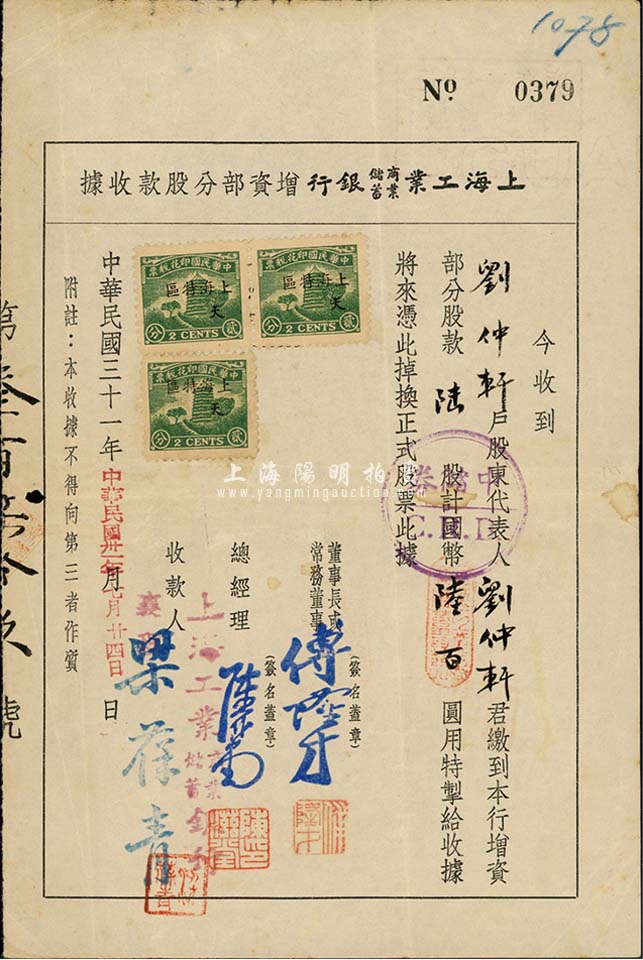 1078
№ 0379
上海工業商業儲蓄銀行增資部分股款收據
今收到
劉仲軒戶股東代表人劉仲軒君繳到本行增資
部分股款 陸 股計國幣 陸百 圓用特掣給收據
將來憑此掉換正式股票此據
中儲券
董事長或常務董事
(簽名蓋章)
總經理
(簽名蓋章)
收款人
上海工業商業儲蓄銀行
梁葆青
中華民國三十一年 月 日
中華民國卅一年七月廿四日
附註：本收據不得向第三者作質
第叁百柒拾玖號
中華民國印花稅票
上海特區
貳分
2 CENTS
中華民國印花稅票
上海特區
貳分
2 CENTS
中華民國印花稅票
上海特區
貳分
2 CENTS
上海陽明拍
www.yangmingauction.com